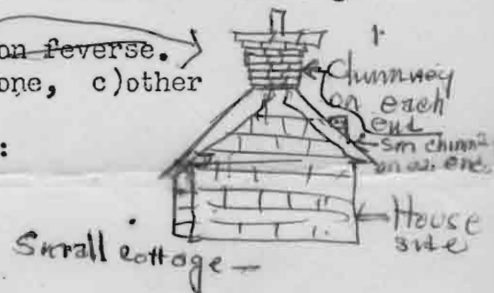 on feverse.
one, c)other
:
1.
Chimney
on each
end
Sm chimn
on ea. end.
House
site
Small cottage —